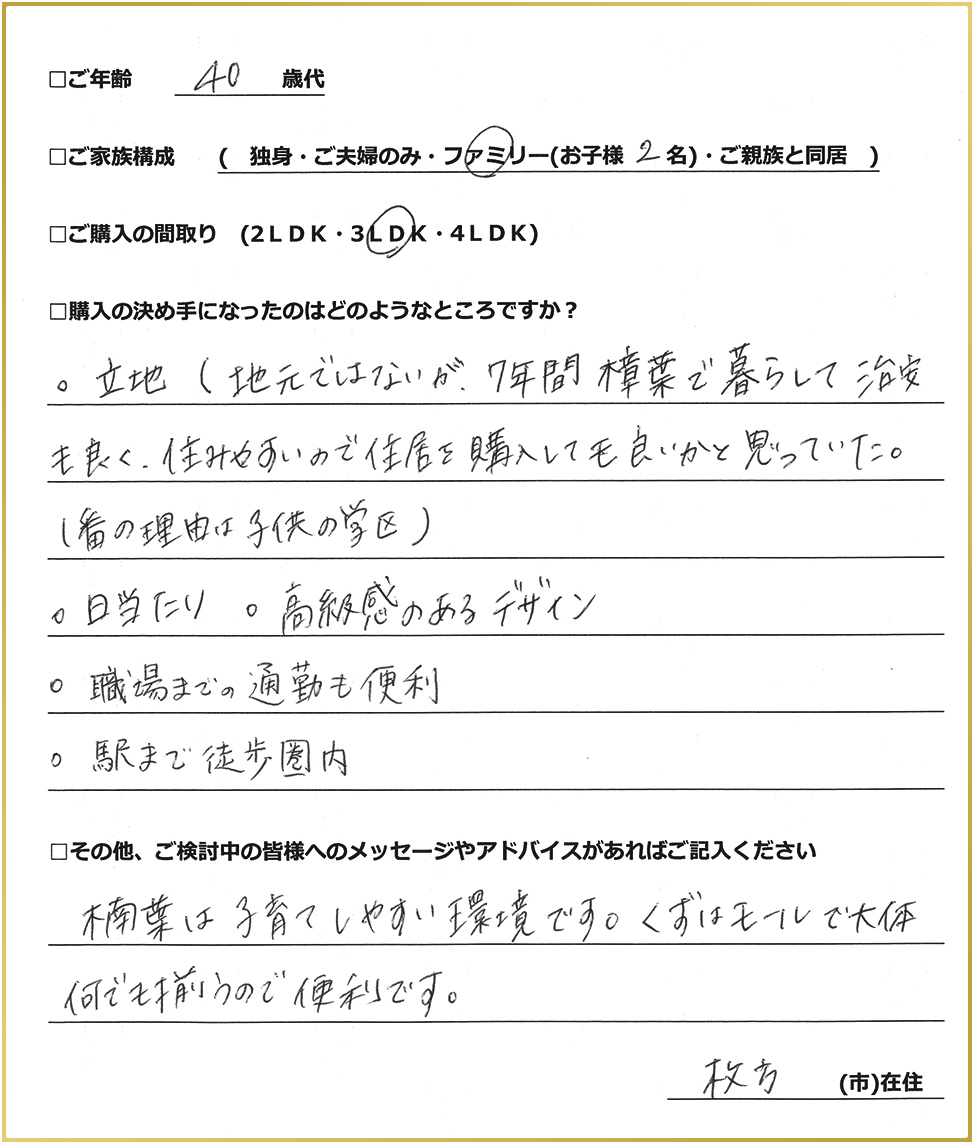 □ご年齢 40 歳代
□ご家族構成 ( 独身・ご夫婦のみ・ファミリー(お子様 2 名)・ご親族と同居 )
□ご購入の間取り (2LDK・3LDK・4LDK)
□購入の決め手になったのはどのようなところですか？
○ 立地 (地元ではないが、7年間 樟葉で暮らして治安
も良く、住みやすいので住居を購入しても良いかと思っていた。
1番の理由は子供の学区)
○ 日当たり ○ 高級感のあるデザイン
○ 職場までの通勤も便利
○ 駅まで徒歩圏内
□その他、ご検討中の皆様へのメッセージやアドバイスがあればご記入ください
楠葉は子育てしやすい環境です。くずはモールで大体
何でも揃うので便利です。
枚方 (市)在住